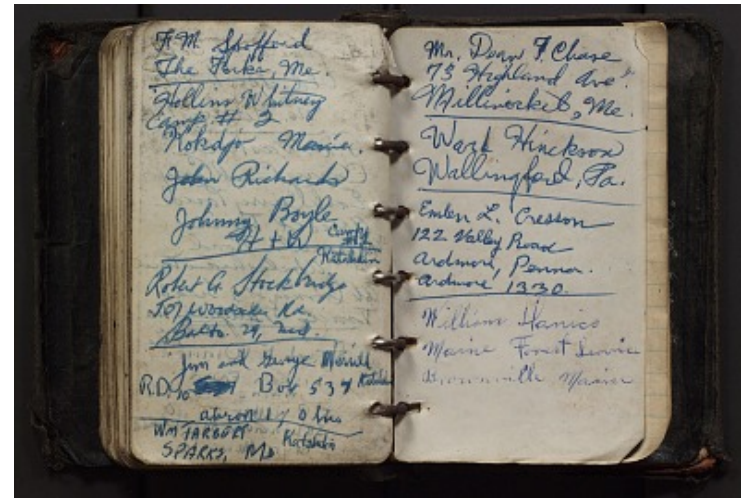 F. M. Spofford
The Forks, Me.
Hollins Whitney
Camp # 2
Kokadjo Maine.
John Richards
Johnny Boyle
H + W Camp
Katahdin
Robert G. Stockbridge
Rd.
Balto. 29, Md.
Jim and George Merrill
R.D. 10 Box 537 Katahdin
akron 1 / Ohio
Wm TARBERT Katahdin
SPARKS, Md
Mr. Dean F. Chase
73 Highland Ave.
Millinocket, Me.
Ward Hinckson
Wallingford, Pa.
Emlen L. Cresson
122 Valley Road
Ardmore, Penna.
Ardmore 1330.
William Hanics
Maine Forest Service
Brownville Maine